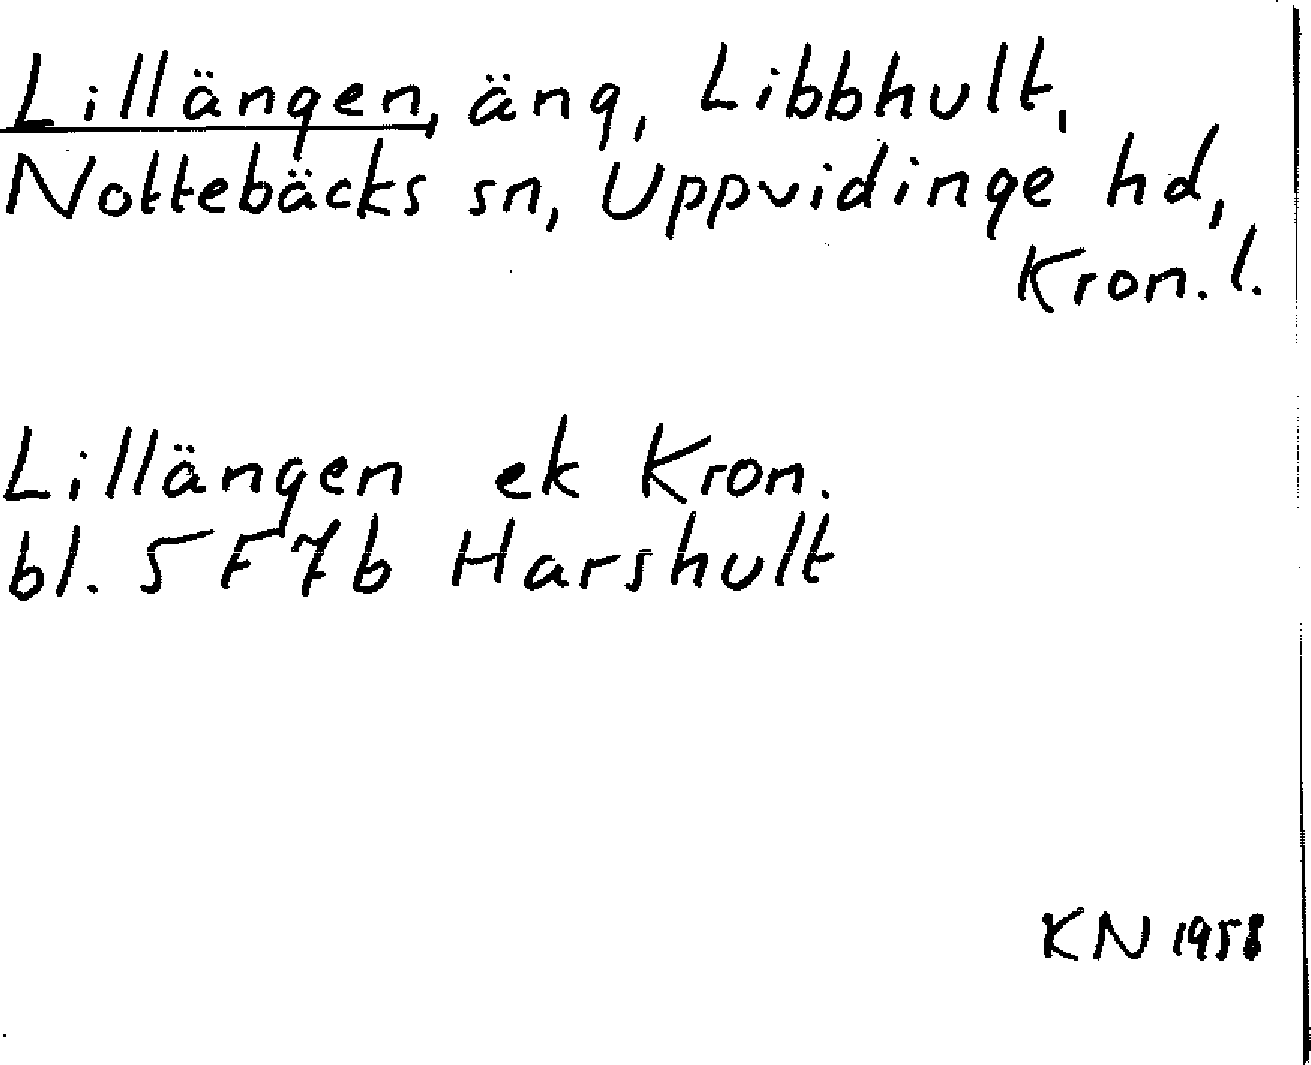 Lillängen, äng, Libbhult,
Nottebäcks sn, Uppvidinge hd,
Kron. l.
Lillängen ek Kron.
bl. 5F7b Harshult
KN 1958